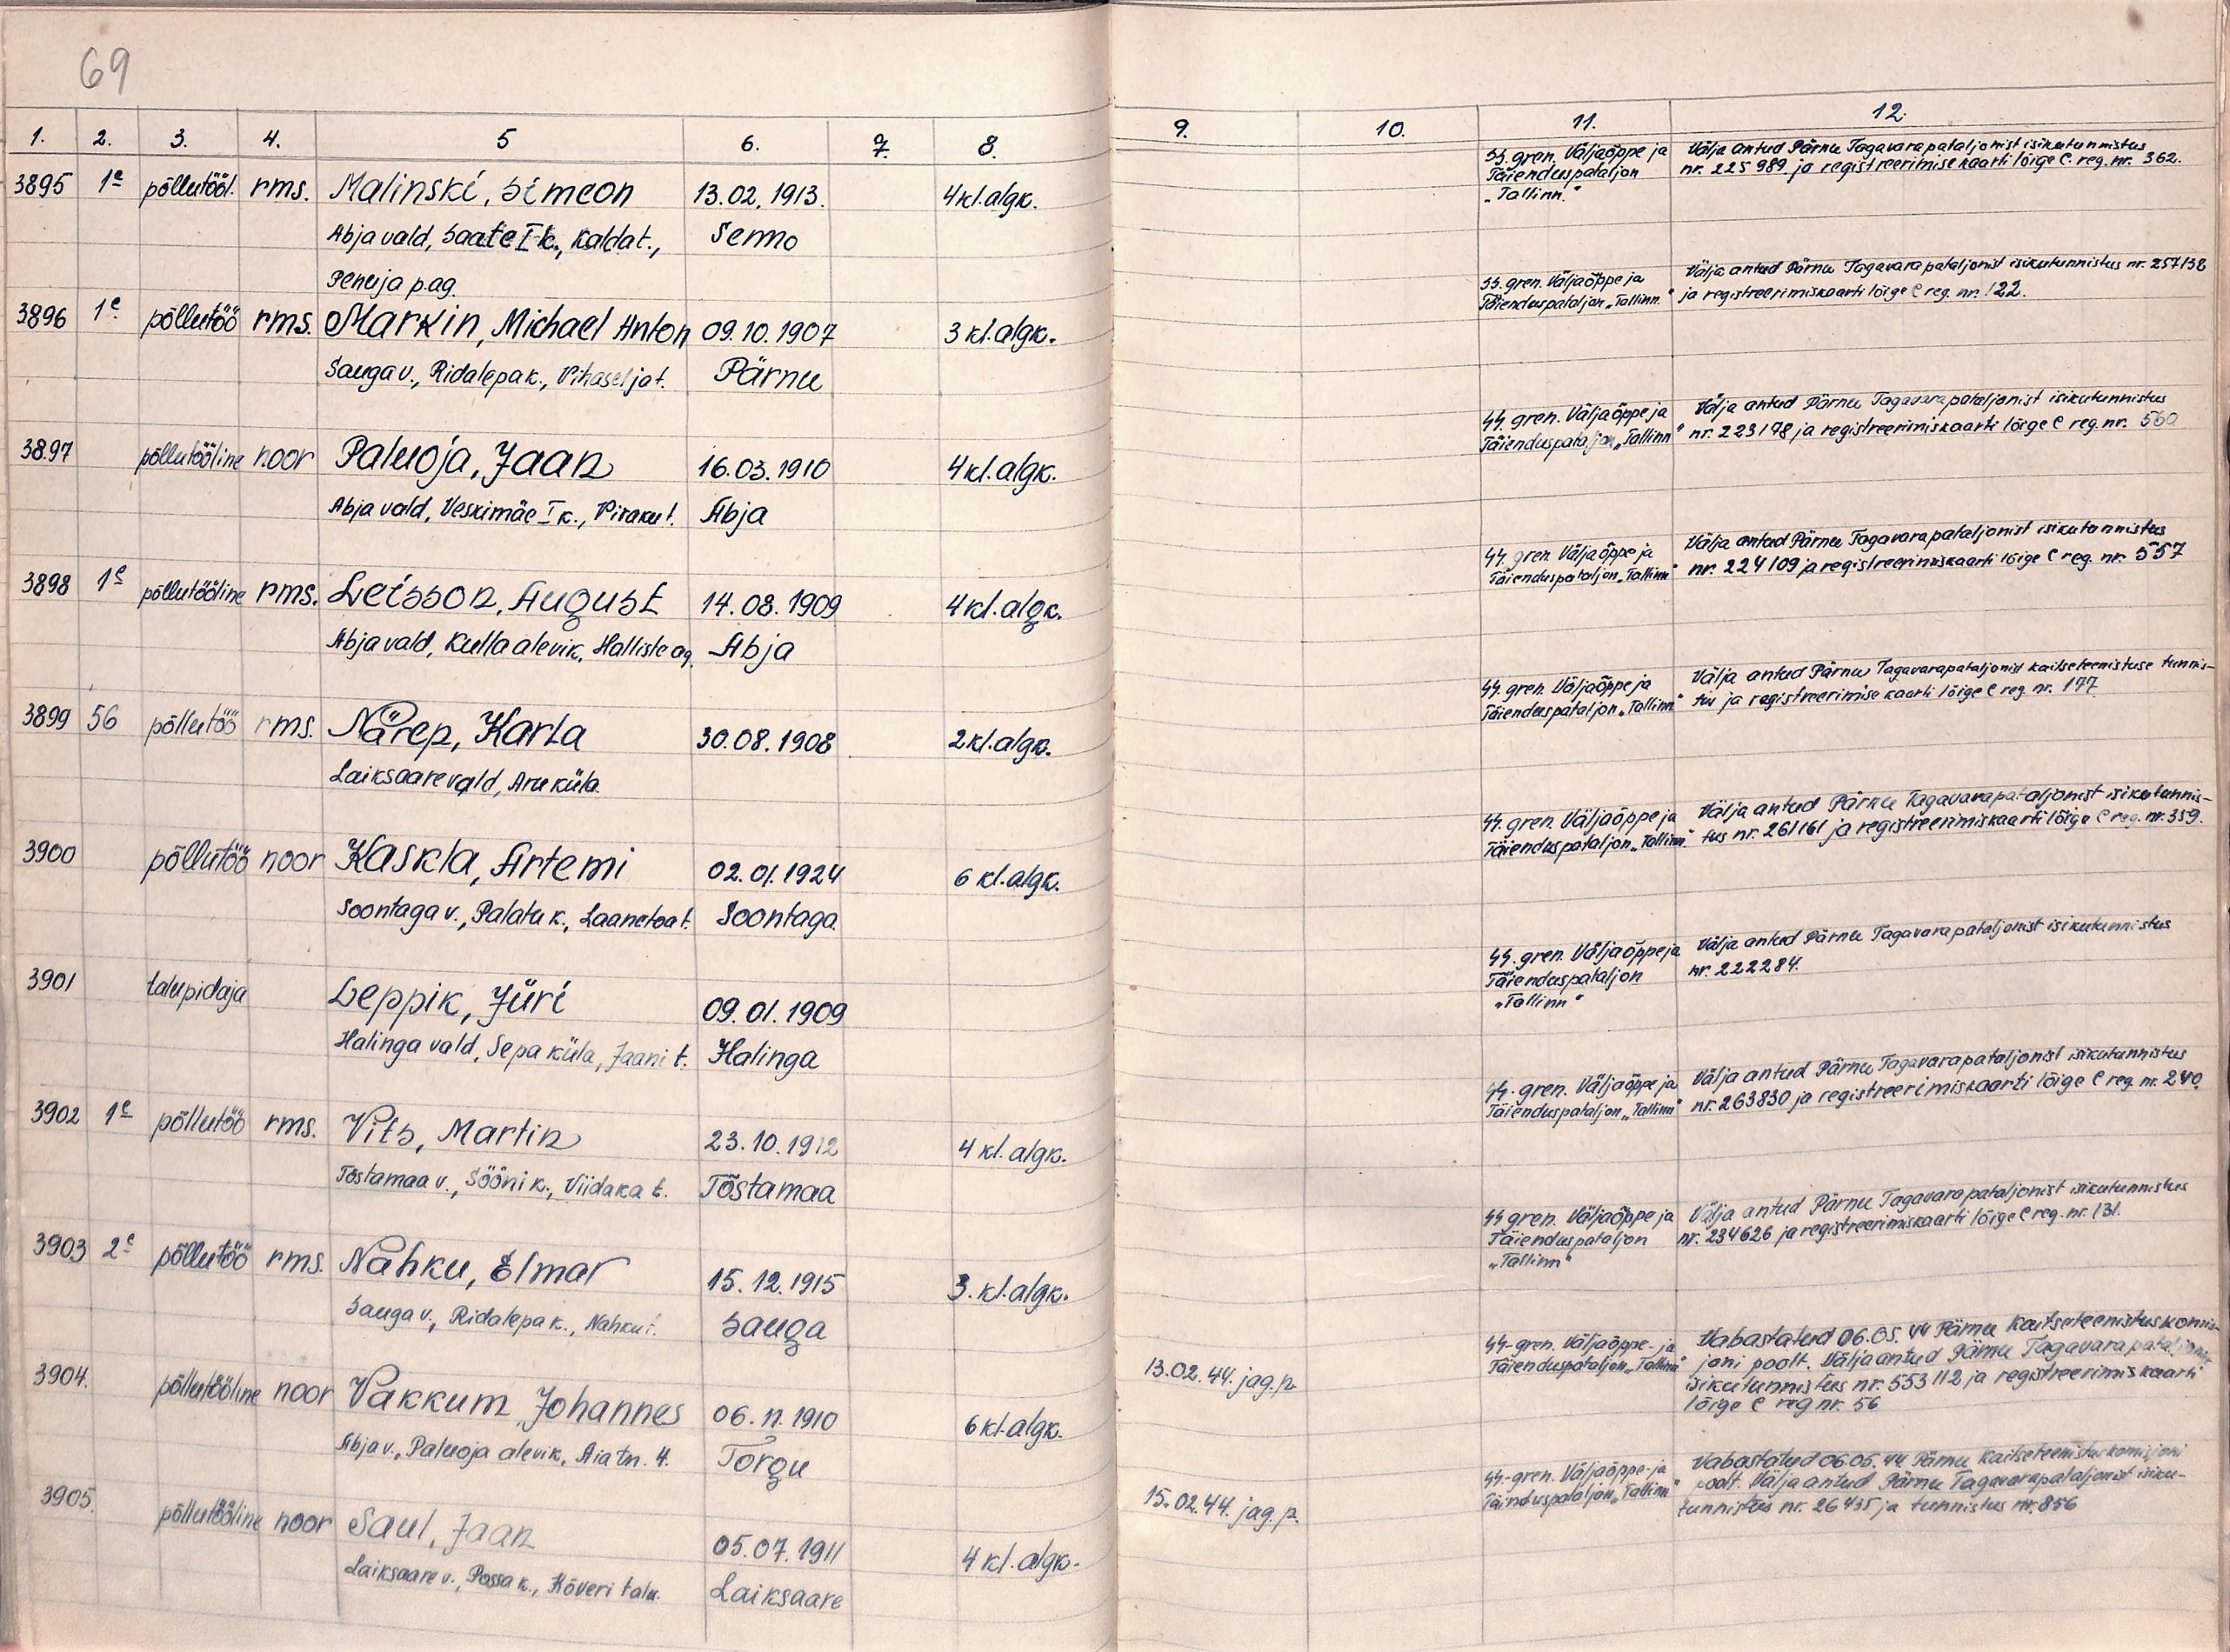 69
1. 2. 3. 4. 5 6. 7. 8. 9. 10. 11. 12.
3895 1e põllutööl. rms. Malinski, Simeon 13.02.1913. 4 kl. algk.
Abja vald, Saate I k., Kalda t., Senno
Penuja p.ag.
SS. gren. Väljaõppe ja
Täienduspataljon
„Tallinn."
Välja antud Pärnu Tagavarapataljonist isikutunnistus
nr. 225 989 ja registreerimisekaarti lõige C. reg. nr. 362.
3896 1e põllutöö rms. Markin, Michael Anton 09.10.1907 3 kl. algk.
Sauga v., Ridalepa k., Vihaselja t. Pärnu
SS. gren. Väljaõppe ja
Täienduspataljon „Tallinn."
Välja antud Pärnu Tagavarapataljonist isikutunnistus nr. 257138
ja registreerimiskaarti lõige C reg. nr. 122.
3897 põllutööline noor Paluoja, Jaan 16.03.1910 4 kl. algk.
Abja vald, Veskimäe I k., Piraku t. Abja
SS. gren. Väljaõppe ja
Täienduspataljon „Tallinn"
Välja antud Pärnu Tagavarapataljonist isikutunnistus
nr. 223178 ja registreerimiskaarti lõige C reg. nr. 560
3898 1e põllutööline rms. Leisson, August 14.08.1909 4 kl. algk.
Abja vald, Kulla alevik, Halliste ag. Abja
SS. gren Väljaõppe ja
Täienduspataljon „Tallinn"
Välja antud Pärnu Tagavarapataljonist isikutunnistus
nr. 224109 ja registreerimiskaarti lõige C reg. nr. 557
3899 56 põllutöö rms. Närep, Karla 30.08.1908 2 kl. algk.
Laiksaare vald, Aru küla.
SS. gren. Väljaõppe ja
Täienduspataljon „Tallinn"
Välja antud Pärnu Tagavarapataljonist kaitseteenistuse tunnis-
tus ja registreerimise kaarti lõige C reg. nr. 177
3900 põllutöö noor Kaskla, Artemi 02.01.1924 6 kl. algk.
Soontaga v., Palatu k., Laanetoa t. Soontaga.
SS. gren. Väljaõppe ja
Täienduspataljon „Tallinn."
Välja antud Pärnu Tagavarapataljonist isikutunnis-
tus nr. 261161 ja registreerimiskaarti lõige C reg. nr. 359.
3901 talupidaja Leppik, Jüri 09.01.1909
Halinga vald, Sepa küla, Jaani t. Halinga
SS. gren. Väljaõppe ja
Täienduspataljon
„Tallinn"
Välja antud Pärnu Tagavarapataljonist isikutunnistus
nr. 222284.
3902 1e põllutöö rms. Vits, Martin 23.10.1912 4 kl. algk.
Tõstamaa v., Sööni k., Viidaka t. Tõstamaa
SS. gren. Väljaõppe ja
Täienduspataljon „Tallinn"
Välja antud Pärnu Tagavarapataljonist isikutunnistus
nr. 263830 ja registreerimiskaarti lõige C reg. nr. 240.
3903 2e põllutöö rms. Nahku, Elmar 15.12.1915 3. kl. algk.
Sauga v., Ridalepa k., Nahku t. Sauga
SS gren. Väljaõppe ja
Täienduspataljon
„Tallinn"
Välja antud Pärnu Tagavarapataljonist isikutunnistus
nr. 234626 ja registreerimiskaarti lõige C reg. nr. 131.
3904. põllutööline noor Vakkum, Johannes 06.11.1910 6 kl. algk. 13.02.44. jag. p.
Abja v., Paluoja alevik, Aia tn. 4. Torgu
SS-gren. Väljaõppe- ja
Täienduspataljon „Tallinn"
Vabastatud 06.05.44 Pärnu kaitseteenistuskomis-
joni poolt. Välja antud Pärnu Tagavarapataljonist
isikutunnistus nr. 553112 ja registreerimiskaarti
lõige C reg nr. 56
3905. põllutööline noor Saul, Jaan 05.07.1911 4 kl. algk. 15.02.44. jag. p.
Laiksaare v., Possa k., Kõveri talu. Laiksaare
SS-gren. Väljaõppe- ja
Täinduspataljon „Tallinn"
Vabastatud 06.05.44 Pärnu Kaitseteenistuskomisjoni
poolt. Välja antud Pärnu Tagavarapataljonist isiku-
tunnistus nr. 26435 ja tunnistus nr. 856